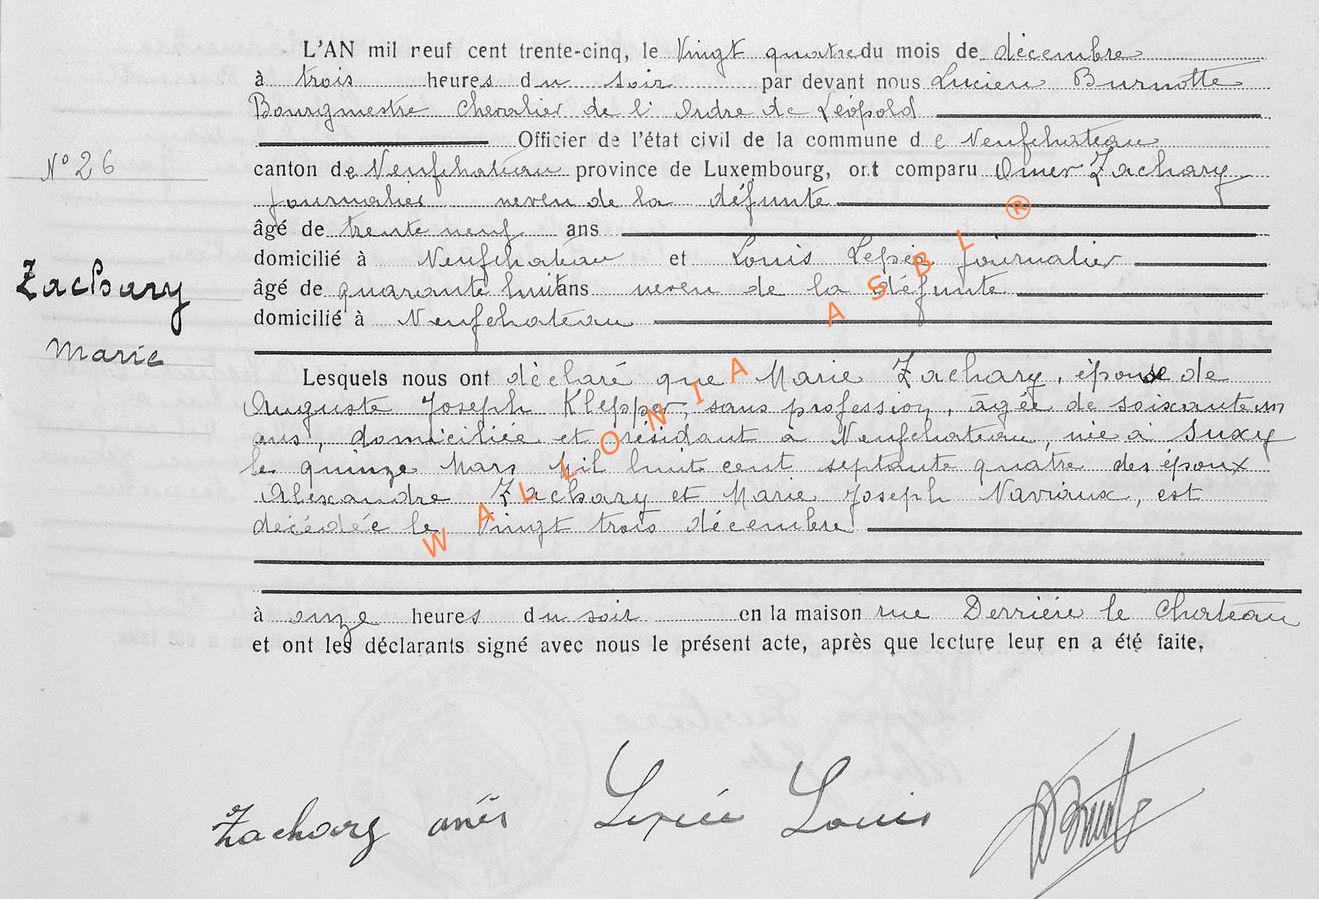 L'AN mil neuf cent trente-cinq, le Vingt quatre du mois de décembre
à trois heures du soir par devant nous Lucien Burnotte
Bourgmestre Chevalier de l'Ordre de Léopold
Officier de l'état civil de la commune de Neufchateau
N° 26
canton de Neufchateau province de Luxembourg, ont comparu Omer Zachary
journalier neveu de la défunte
âgé de trente neuf ans
domicilié à Neufchateau et Louis journalier
Zachary
Marie
âgé de quarante huit ans neveu de la défunte
domicilié à Neufchateau
Lesquels nous ont déclaré que Marie Zachary, épouse de
Auguste Joseph Klepper, sans profession, âgée de soixante un
ans, domiciliée et résidant à Neufchateau, née à Suxy
le quinze Mars Mil huit cent septante quatre des époux
Alexandre Zachary et Marie Joseph Naviaux, est
décédée le Vingt trois décembre
à onze heures du soir en la maison rue Derrière le Chateau
et ont les déclarants signé avec nous le présent acte, après que lecture leur en a été faite.
Zachary Louis
WALLONIA ASBL ®